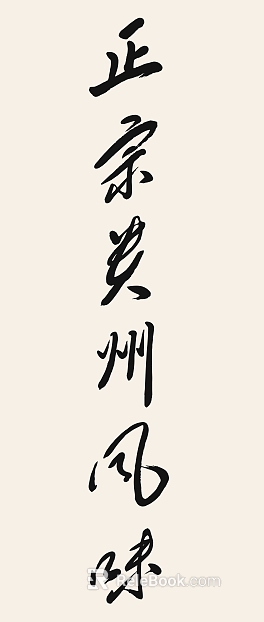 正宗贵州风味
ReleBook.com